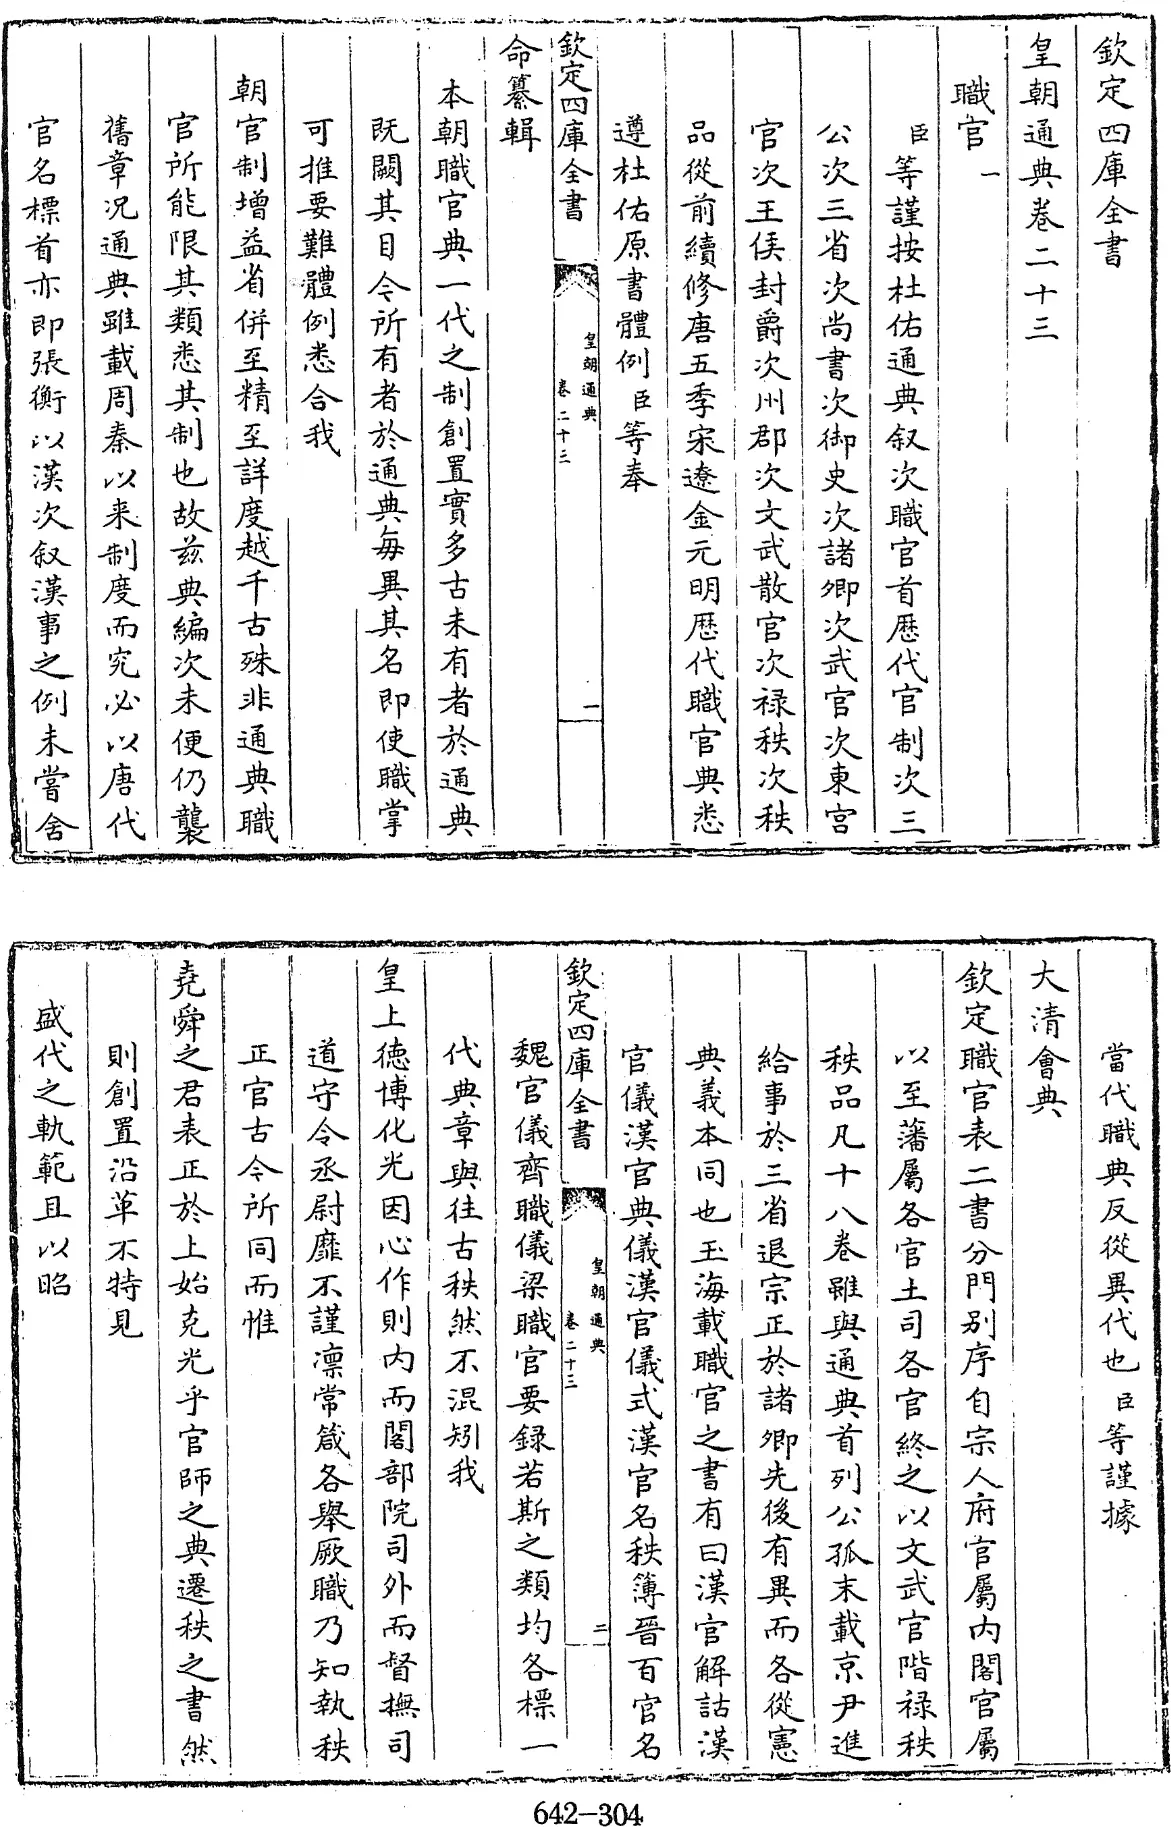 欽定四庫全書
皇朝通典卷二十三
職官一
臣等謹按杜佑通典叙次職官首歷代官制次三
公次三省次尚書次御史次諸卿次武官次東宮
官次王侯封爵次州郡次文武散官次禄秩次秩
品從前續修唐五季宋遼金元明歷代職官典悉
遵杜佑原書體例臣等奉
欽定四庫全書
皇朝通典
卷二十三
一
命纂輯
本朝職官典一代之制創置實多古未有者於通典
既闕其目今所有者於通典每異其名即使職掌
可推要難體例悉合我
朝官制增益省併至精至詳度越千古殊非通典職
官所能限其類悉其制也故兹典編次未便仍襲
舊章况通典雖載周秦以来制度而究必以唐代
官名標首亦即張衡以漢次叙漢事之例未嘗舍
當代職典反從異代也臣等謹據
大清會典
欽定職官表二書分門别序自宗人府官屬内閣官屬
以至藩屬各官土司各官終之以文武官階禄秩
秩品凡十八卷雖與通典首列公孤末載京尹進
給事於三省退宗正於諸卿先後有異而各從憲
典義本同也玉海載職官之書有曰漢官解詁漢
官儀漢官典儀漢官儀式漢官名秩簿晉百官名
欽定四庫全書
皇朝通典
卷二十三
二
魏官儀齊職儀梁職官要録若斯之類均各標一
代典章與往古秩然不混矧我
皇上德博化光因心作則内而閣部院司外而督撫司
道守令丞尉靡不謹凛常箴各舉厥職乃知執秩
正官古今所同而惟
堯舜之君表正於上始克光乎官師之典遷秩之書然
則創置沿革不特見
盛代之軌範且以昭
642-304